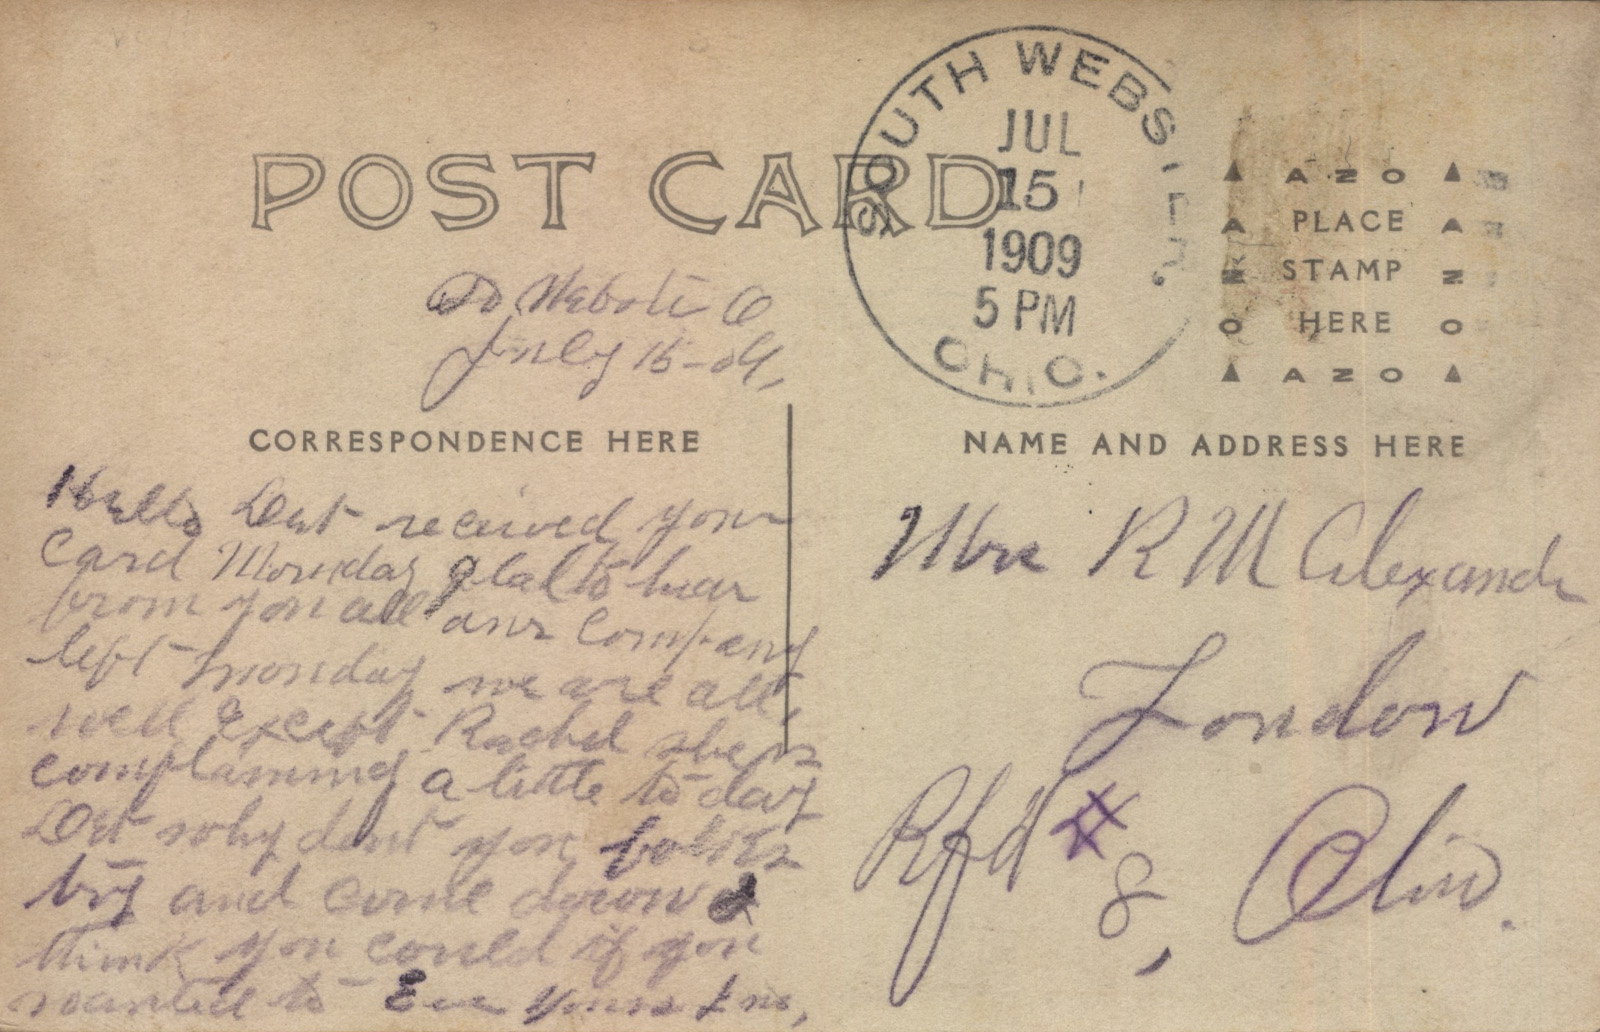 POST CARD
SOUTH WEBSTER
JUL
15
1909
5 PM
OHIO.
▲ AZO ▲
A PLACE A
Z STAMP Z
O HERE O
▲ AZO ▲
So Webster O
July 15-09,
CORRESPONDENCE HERE
NAME AND ADDRESS HERE
Hello received your
Card Monday glad to hear
from you all our Company
left monday we are all
well except Rachel she is
complaining a little to day
why dont you
try and come down I
think you could if you
wanted to Ever Yours
Mrs R M Alexander
London
Rfd # 8, Ohio.